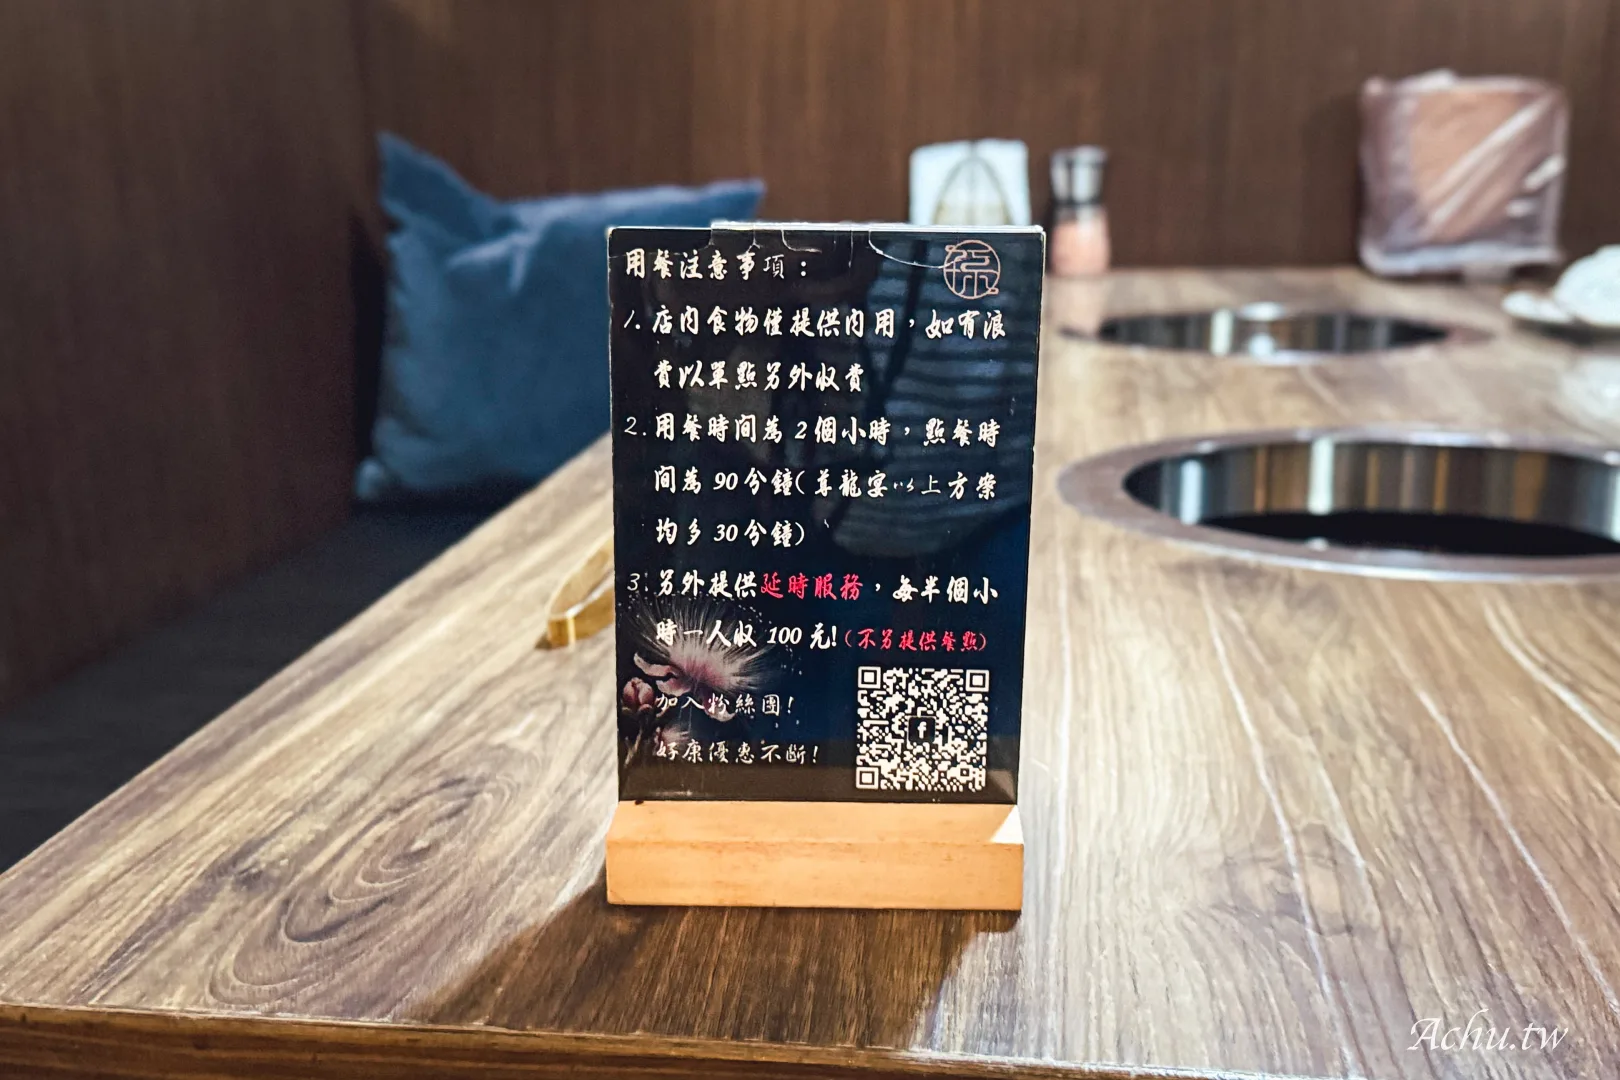 用餐注意事項：
1. 店內食物僅提供內用，如有浪
費以單點另外收費
2. 用餐時間為 2 個小時，點餐時
間為 90 分鐘( 尊龍宴以上方案
均多 30 分鐘)
3. 另外提供延時服務，每半個小
時一人收 100 元! (不另提供餐點)
加入粉絲團!
好康優惠不斷!
f
Achu.tw